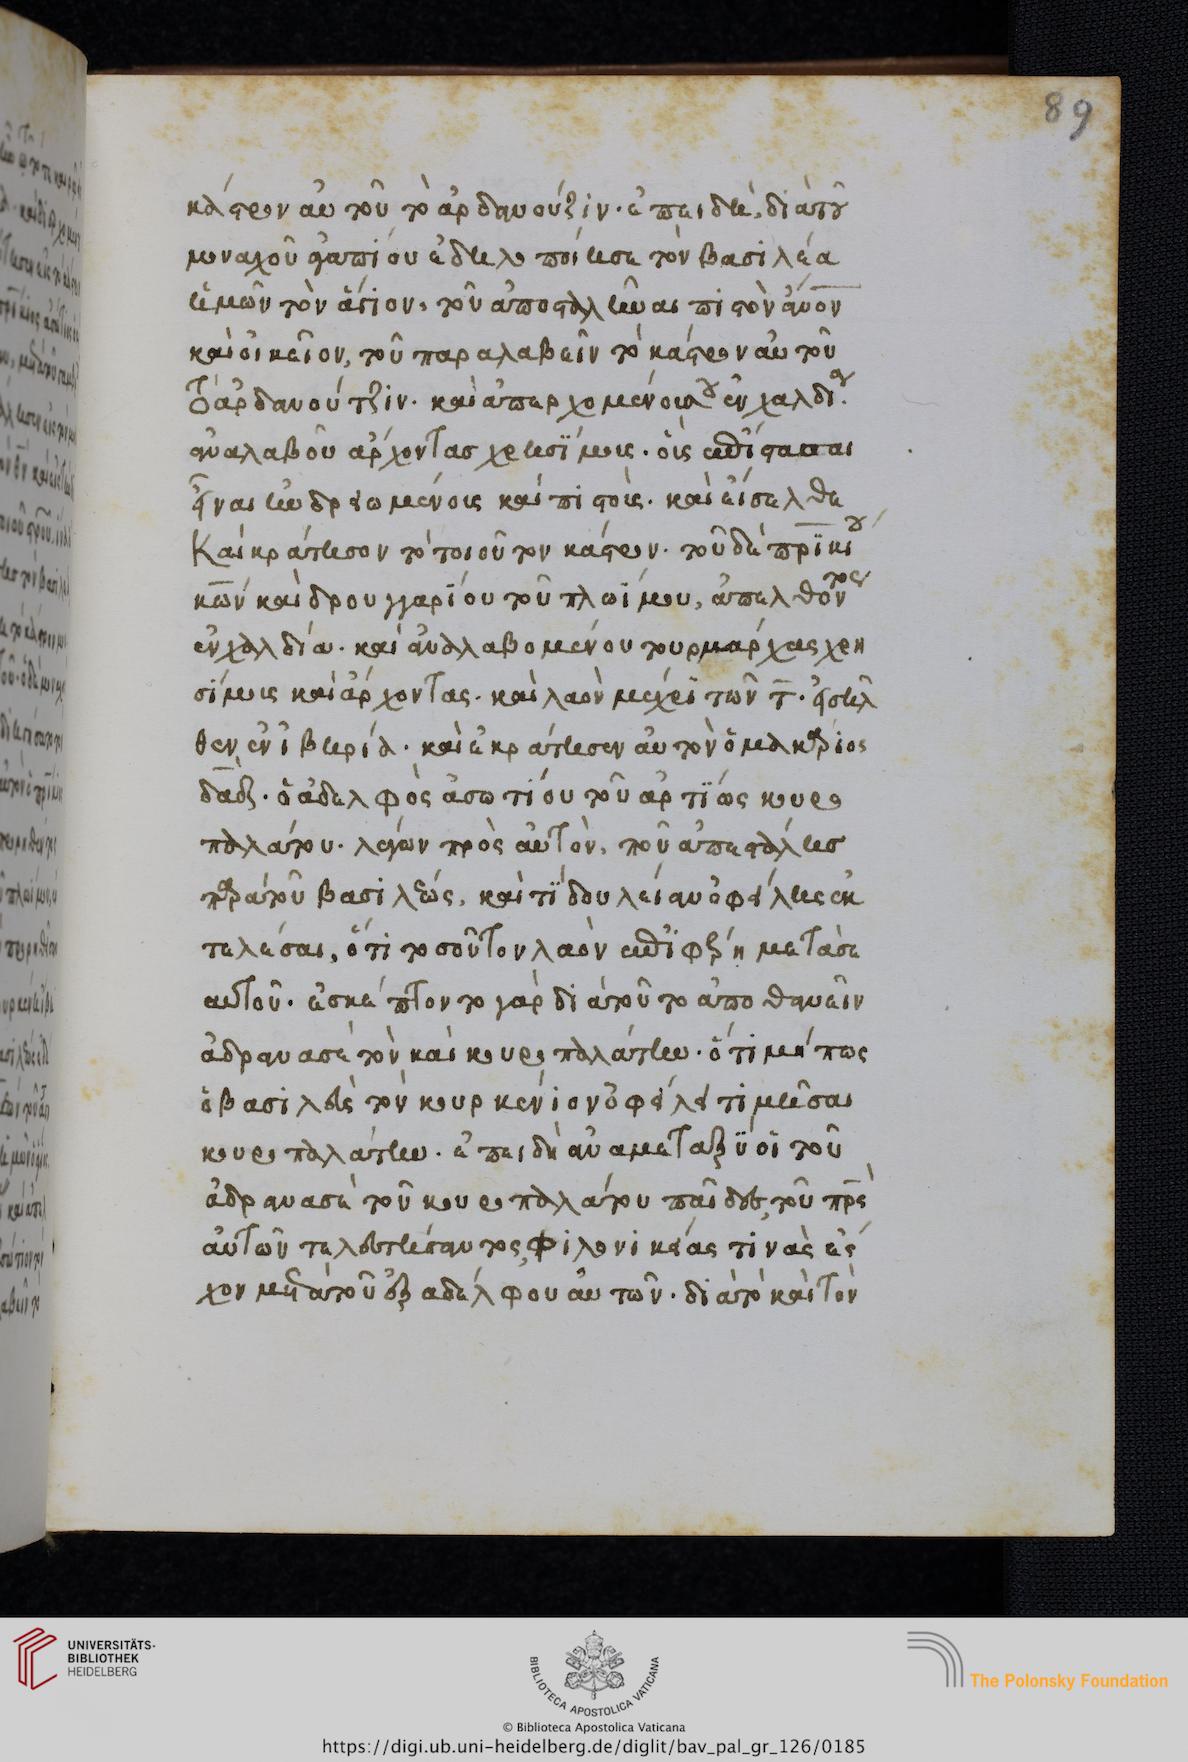 89
κάστρον αὐτοῦ τὸ ἀρδανούζιν· ἐπειδὴ, διὰ τοῦ
μοναχοῦ ἀγαπίου ἐδηλοποίησε τὸν βασιλέα
ἡμῶν τὸν ἅγιον, τοῦ ἀποσταλῆναι πιστὸν ἄνον
καὶ οἰκεῖον, τοῦ παραλαβεῖν τὸ κάστρον αὐτοῦ
τὸ ἀρδανούτζιν· καὶ ἀπερχομένου σου ἐν χαλδίᾳ.
ἀναλαβοῦ ἄρχοντας χρησίμους· οἷς ἐπίστασαι
εἶναι ἠνδρειωμένοις καὶ πιστοῖς· καὶ εἴσελθε
Καὶ κράτησον τὸ τοιοῦτον κάστρον· τοῦ δὲ πρικι
κῶν καὶ δρουγγαρίου τοῦ πλοΐμου, ἀπελθόντος
ἐν χαλδίᾳ· καὶ ἀναλαβομένου τουρμάρχας χρη
σίμους καὶ ἄρχοντας· καὶ λαὸν μέχρι τῶν τ· εἰσελ
θεν ἐν ἰβηρίᾳ· καὶ ἐκράτησεν αὐτὸν ὁ μακάριος
δαδ· ὁ ἀδελφὸς ἀσωτίου τοῦ ἀρτίως κουρο
παλάτου· λέγων πρὸς αὐτὸν, ποῦ ἀπεστάλης
παρὰ τοῦ βασιλέως, καὶ τί δουλείαν ὀφείλεις ἐκ
τελέσαι, ὅτι τοσοῦτον λαὸν ἐπιφέρῃ μετὰ σε
αυτοῦ· ἐσκέπτοντο γὰρ διὰ τοῦ τὸ ἀποθανεῖν
ἀδρανασὲ τὸν καὶ κουροπαλάτην· ὅτι μήπως
ὁ βασιλεὺς τὸν κουρκένιον ὀφείλει τιμῆσαι
κουροπαλάτην· ἐπειδὴ ἀναμεταξὺ οἱ τοῦ
ἀδρανασὲ τοῦ κουροπαλάτου παῖδες, τοῦ πρς
αὐτῶν τελευτήσαντος, φιλονικείας τινὰς εἶ
χον μετὰ τοῦ ἐξαδέλφου αὐτῶν· διὰ τὸ καὶ τὸν
UNIVERSITÄTS-
BIBLIOTHEK
HEIDELBERG
BIBLIOTECA APOSTOLICA VATICANA
The Polonsky Foundation
© Biblioteca Apostolica Vaticana
https://digi.ub.uni-heidelberg.de/diglit/bav_pal_gr_126/0185